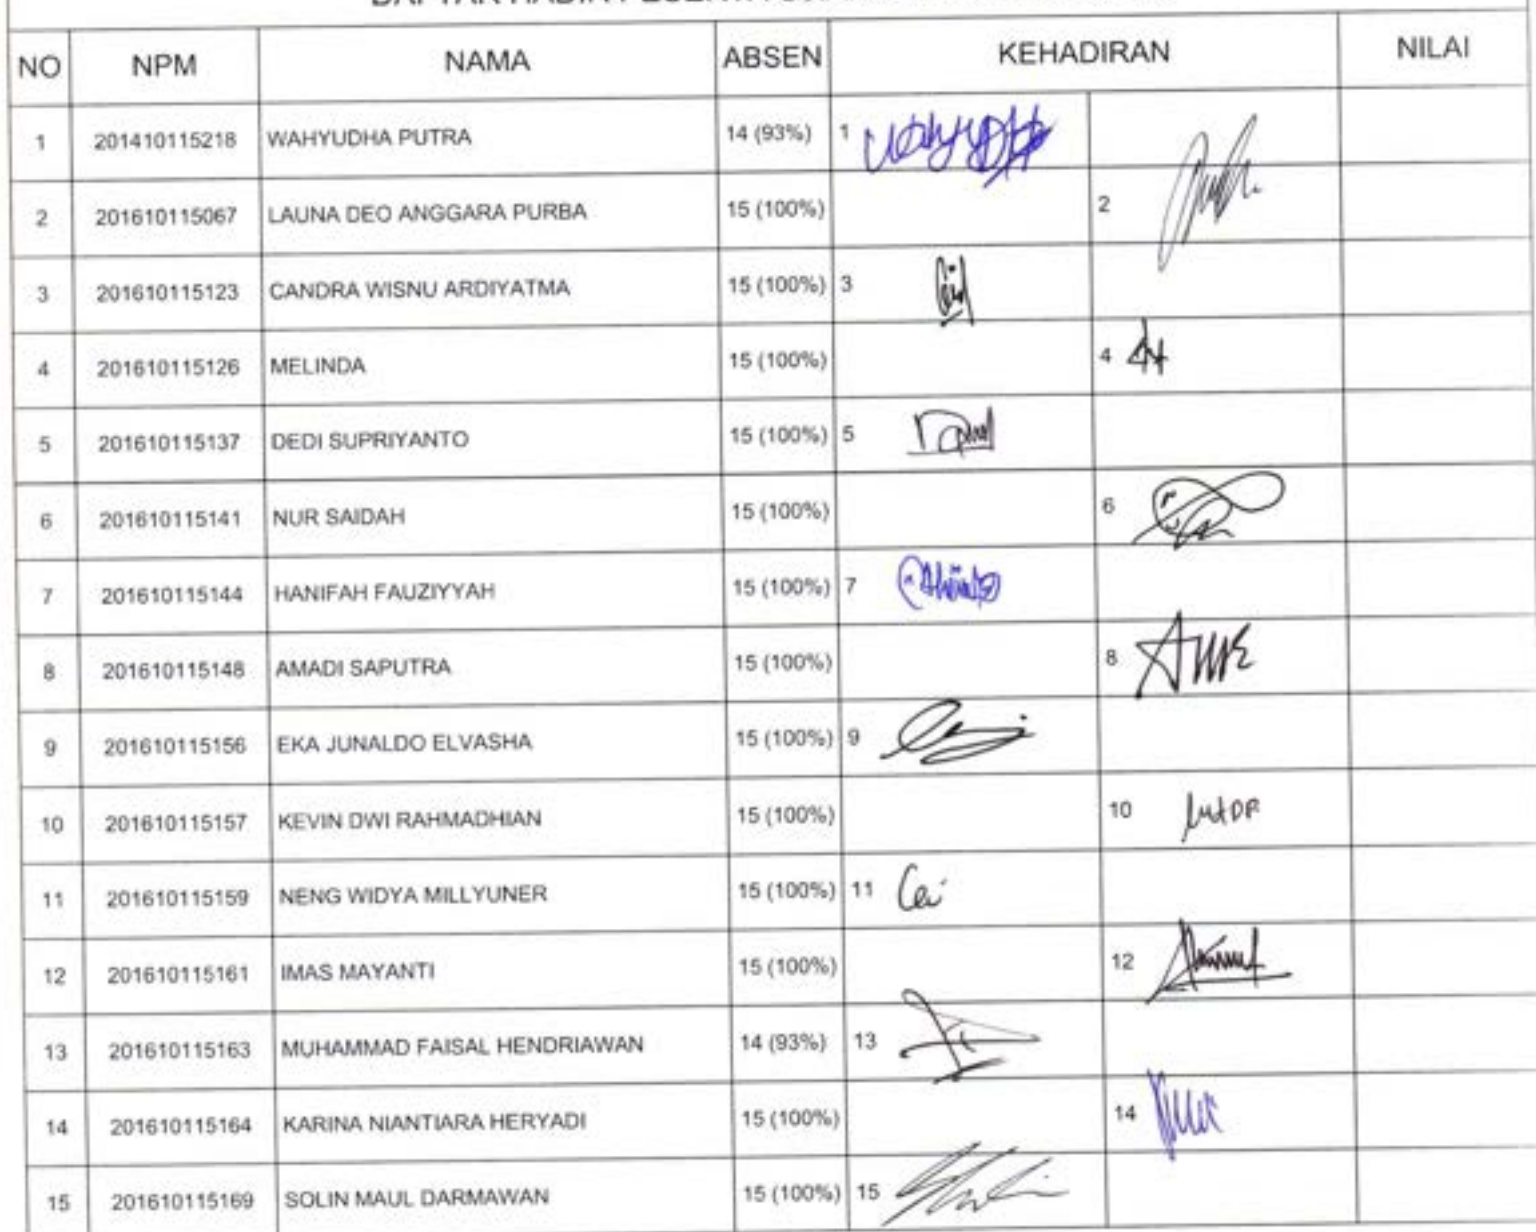 NO NPM NAMA ABSEN KEHADIRAN NILAI
1 201410115218 WAHYUDHA PUTRA 14 (93%) 1
2 201610115067 LAUNA DEO ANGGARA PURBA 15 (100%) 2
3 201610115123 CANDRA WISNU ARDIYATMA 15 (100%) 3
4 201610115126 MELINDA 15 (100%) 4
5 201610115137 DEDI SUPRIYANTO 15 (100%) 5
6 201610115141 NUR SAIDAH 15 (100%) 6
7 201610115144 HANIFAH FAUZIYYAH 15 (100%) 7
8 201610115148 AMADI SAPUTRA 15 (100%) 8
9 201610115156 EKA JUNALDO ELVASHA 15 (100%) 9
10 201610115157 KEVIN DWI RAHMADHIAN 15 (100%) 10
11 201610115159 NENG WIDYA MILLYUNER 15 (100%) 11
12 201610115161 IMAS MAYANTI 15 (100%) 12
13 201610115163 MUHAMMAD FAISAL HENDRIAWAN 14 (93%) 13
14 201610115164 KARINA NIANTIARA HERYADI 15 (100%) 14
15 201610115169 SOLIN MAUL DARMAWAN 15 (100%) 15